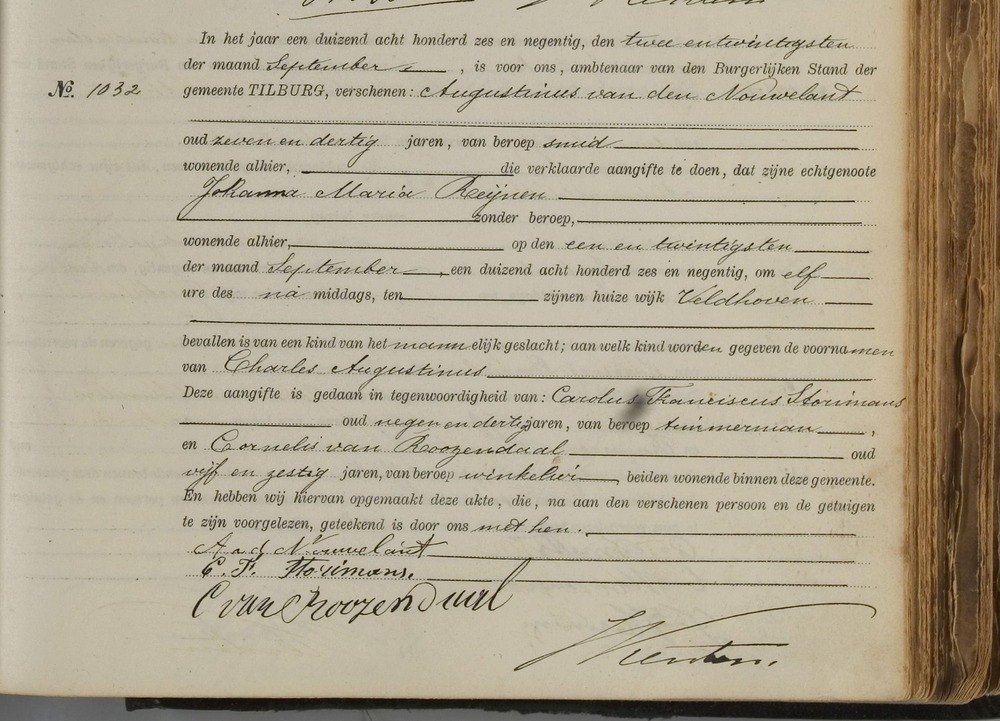 In het jaar een duizend acht honderd zes en negentig, den twee entwintigsten
der maand September, is voor ons, ambtenaar van den Burgerlijken Stand der
No. 1032
gemeente TILBURG, verschenen: Augustinus van den Nouwelant
oud zeven en dertig jaren, van beroep smid
wonende alhier, die verklaarde aangifte te doen, dat zijne echtgenoote
Johanna Maria Reijnen
zonder beroep,
wonende alhier, op den een en twintigsten
der maand September, een duizend acht honderd zes en negentig, om elf
ure des na middags, ten zijnen huize wijk Veldhoven
bevallen is van een kind van het mannelijk geslacht; aan welk kind worden gegeven de voornamen
van Charles Augustinus
Deze aangifte is gedaan in tegenwoordigheid van: Carolus Franciscus Storimans
oud negen en dertig jaren, van beroep timmerman,
en Cornelis van Roozendaal oud
vijf en zestig jaren, van beroep winkelier, beiden wonende binnen deze gemeente.
En hebben wij hiervan opgemaakt deze akte, die, na aan den verschenen persoon en de getuigen
te zijn voorgelezen, geteekend is door ons met hen.
A v d Nouwelant
C. F. Storimans.
C van Roozendaal